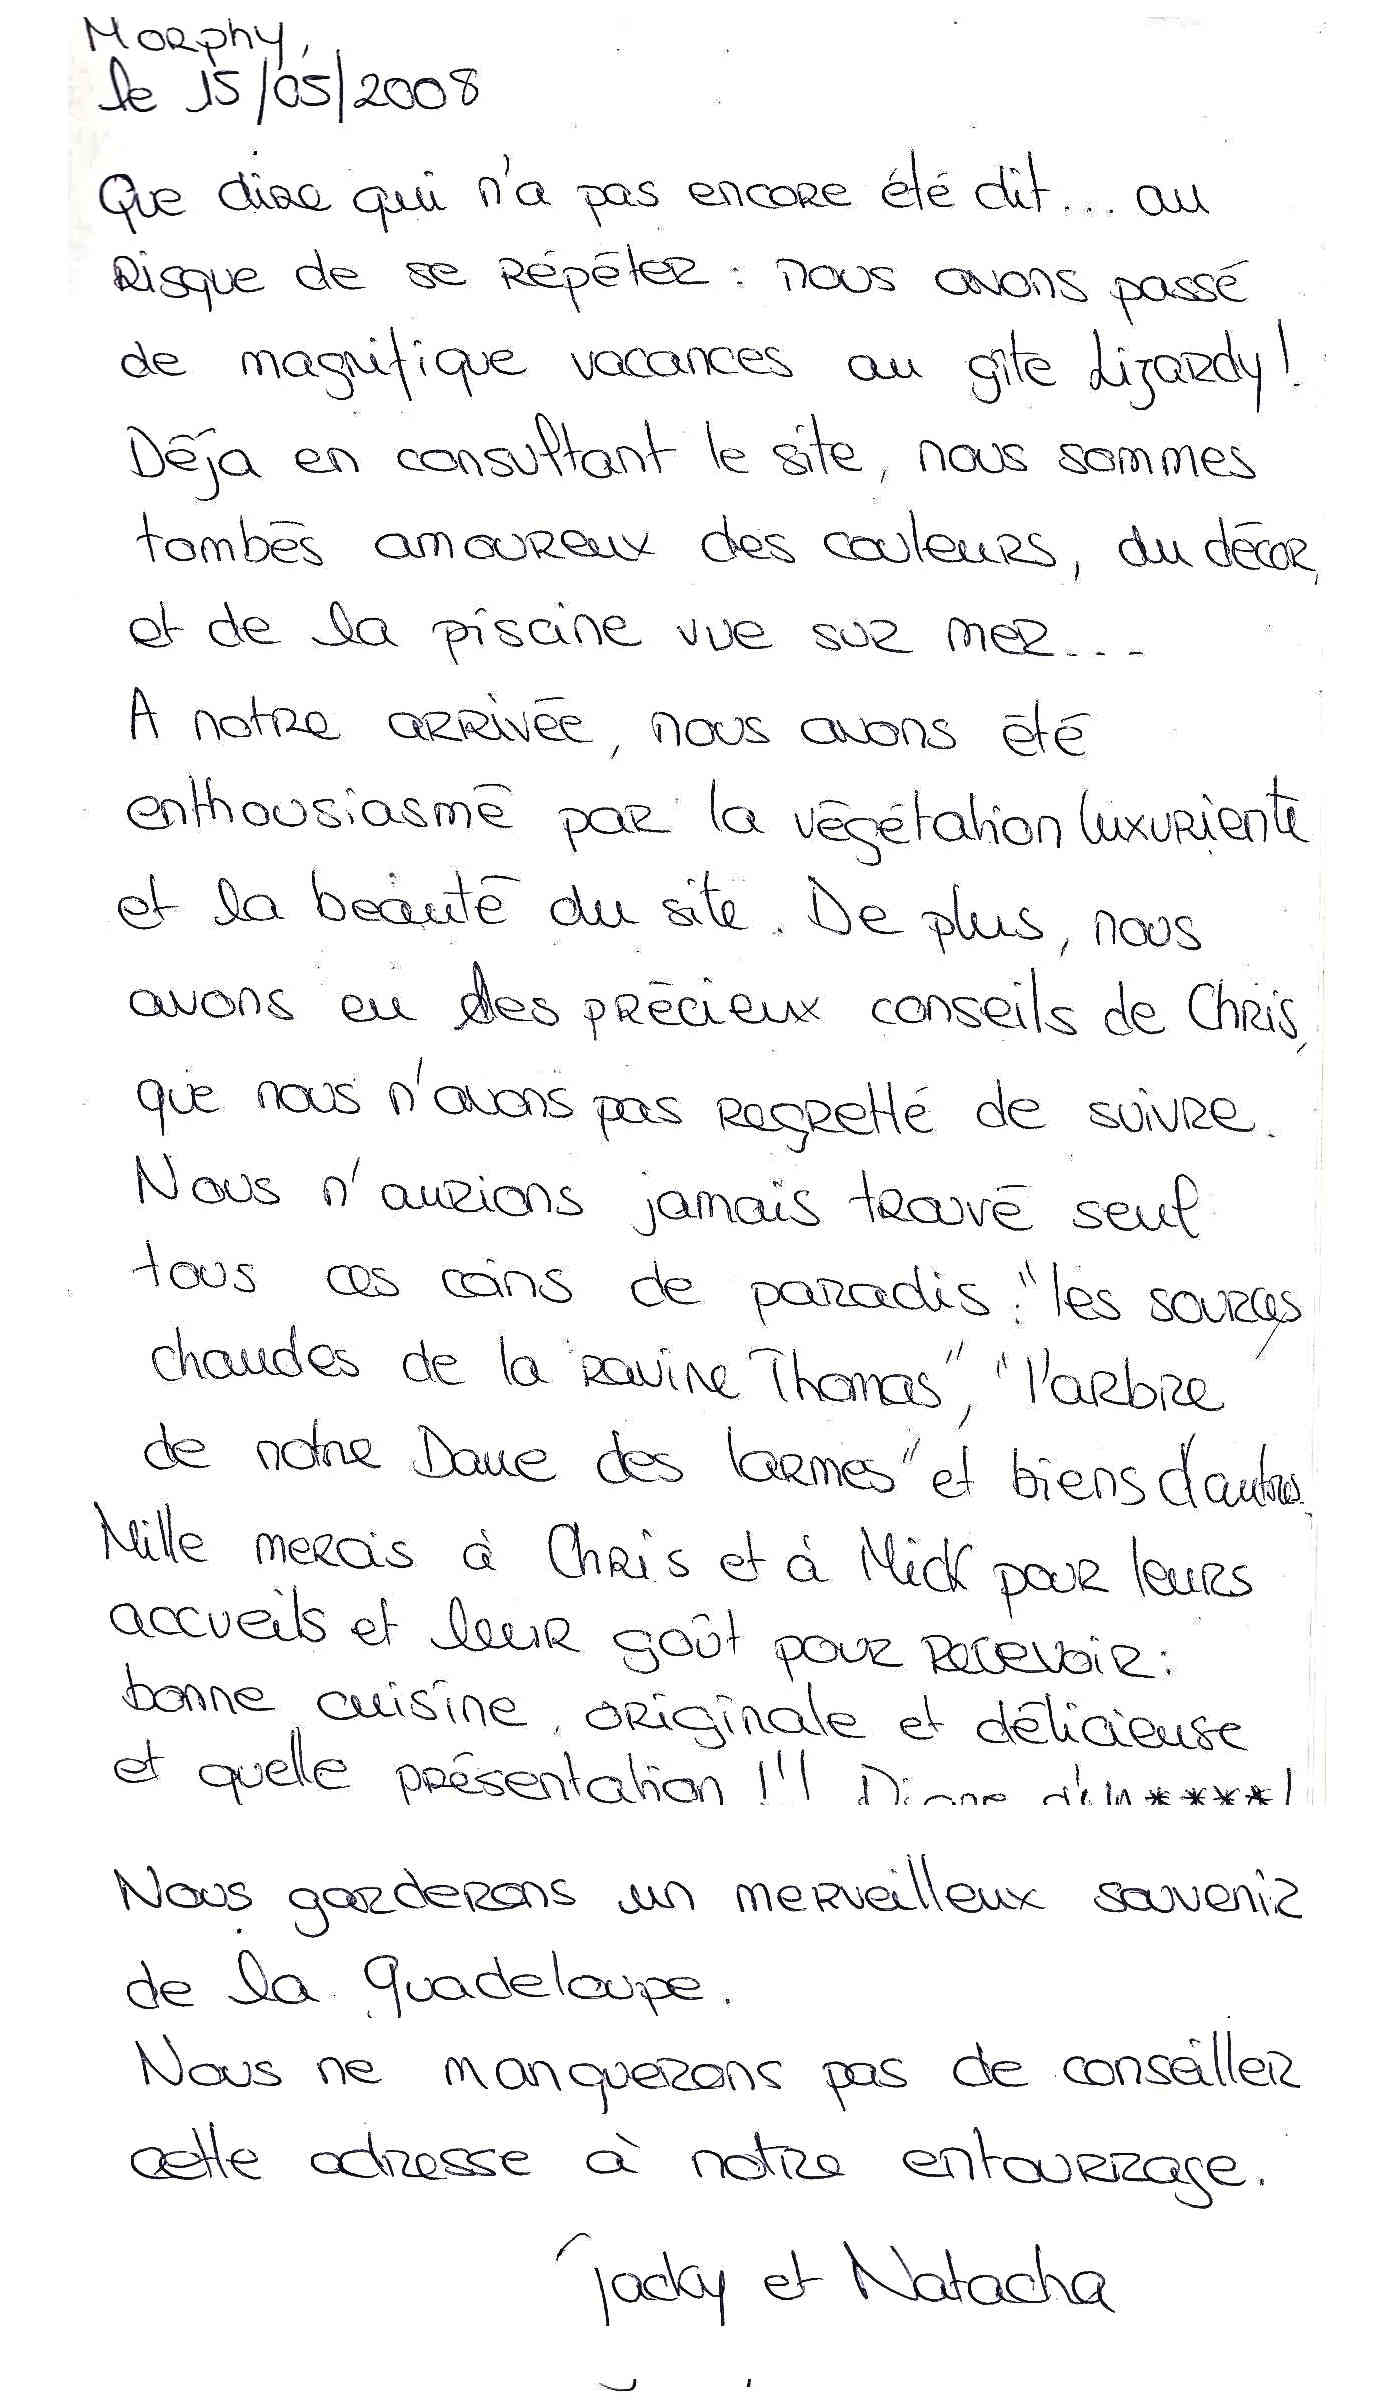 Morphy,
le 15/05/2008
Que dire qui n'a pas encore été dit... au
risque de se répéter : nous avons passé
de magnifique vacances au gîte Lizardy !
Déja en consultant le site, nous sommes
tombés amoureux des couleurs, du décor,
et de la piscine vue sur mer...
A notre arrivée, nous avons été
enthousiasmé par la végétation luxuriente
et la beauté du site. De plus, nous
avons eu des précieux conseils de Chris,
que nous n'avons pas regretté de suivre.
Nous n'aurions jamais trouvé seul
tous ces coins de paradis : "les sources
chaudes de la ravine Thomas", "l'arbre
de notre Dame des larmes" et biens d'autres.
Mille mercis à Chris et à Mick pour leurs
accueils et leur goût pour recevoir :
bonne cuisine, originale et délicieuse
et quelle présentation !!! Digne d'un **** !
Nous garderons un merveilleux souvenir
de la Guadeloupe.
Nous ne manquerons pas de conseiller
cette adresse à notre entourrage.
Jacky et Natacha